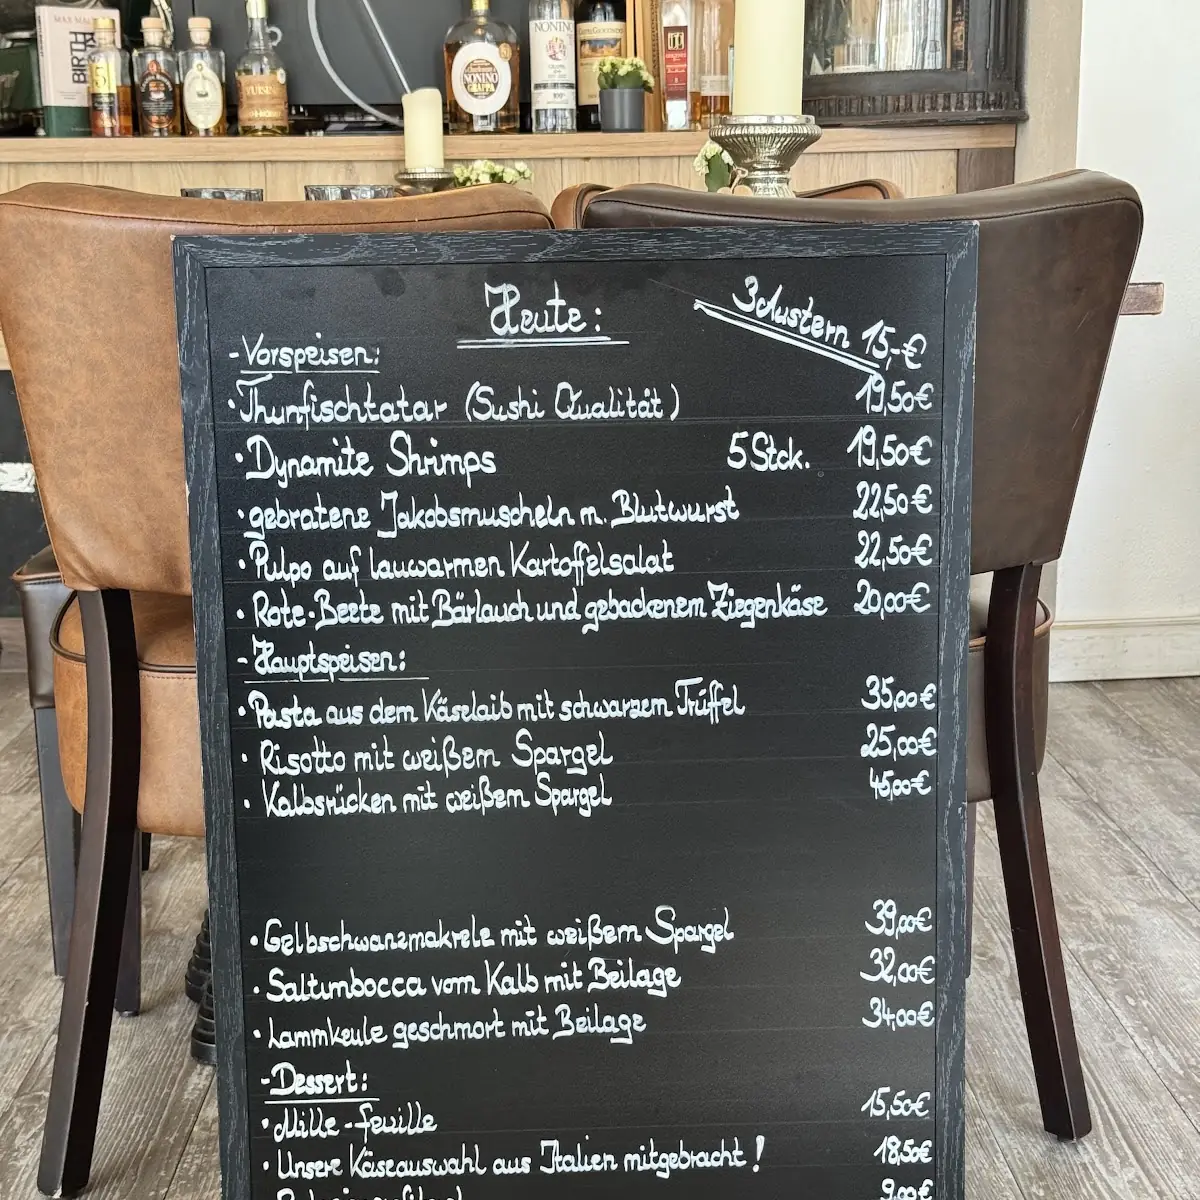 MAX MAL
BIRTH
51
YURSIN
NONINO
GRAPPA
NONINO
GRAPPA
Heute:
3 Austern 15,-€
-Vorspeisen:
·Thunfischtatar (Sushi Qualität) 19,50€
·Dynamite Shrimps 5 Stck. 19,50€
·gebratene Jakobsmuscheln m. Blutwurst 22,50€
·Pulpo auf lauwarmen Kartoffelsalat 22,50€
·Rote-Beete mit Bärlauch und gebackenem Ziegenkäse 20,00€
-Hauptspeisen:
·Pasta aus dem Käselaib mit schwarzem Trüffel 35,00€
·Risotto mit weißem Spargel 25,00€
·Kalbsrücken mit weißem Spargel 45,00€
·Gelbschwanzmakrele mit weißem Spargel 39,00€
·Saltimbocca vom Kalb mit Beilage 32,00€
·Lammkeule geschmort mit Beilage 34,00€
-Dessert:
·Mille-feuille 15,50€
·Unsere Käseauswahl aus Italien mitgebracht! 18,50€
9,00€